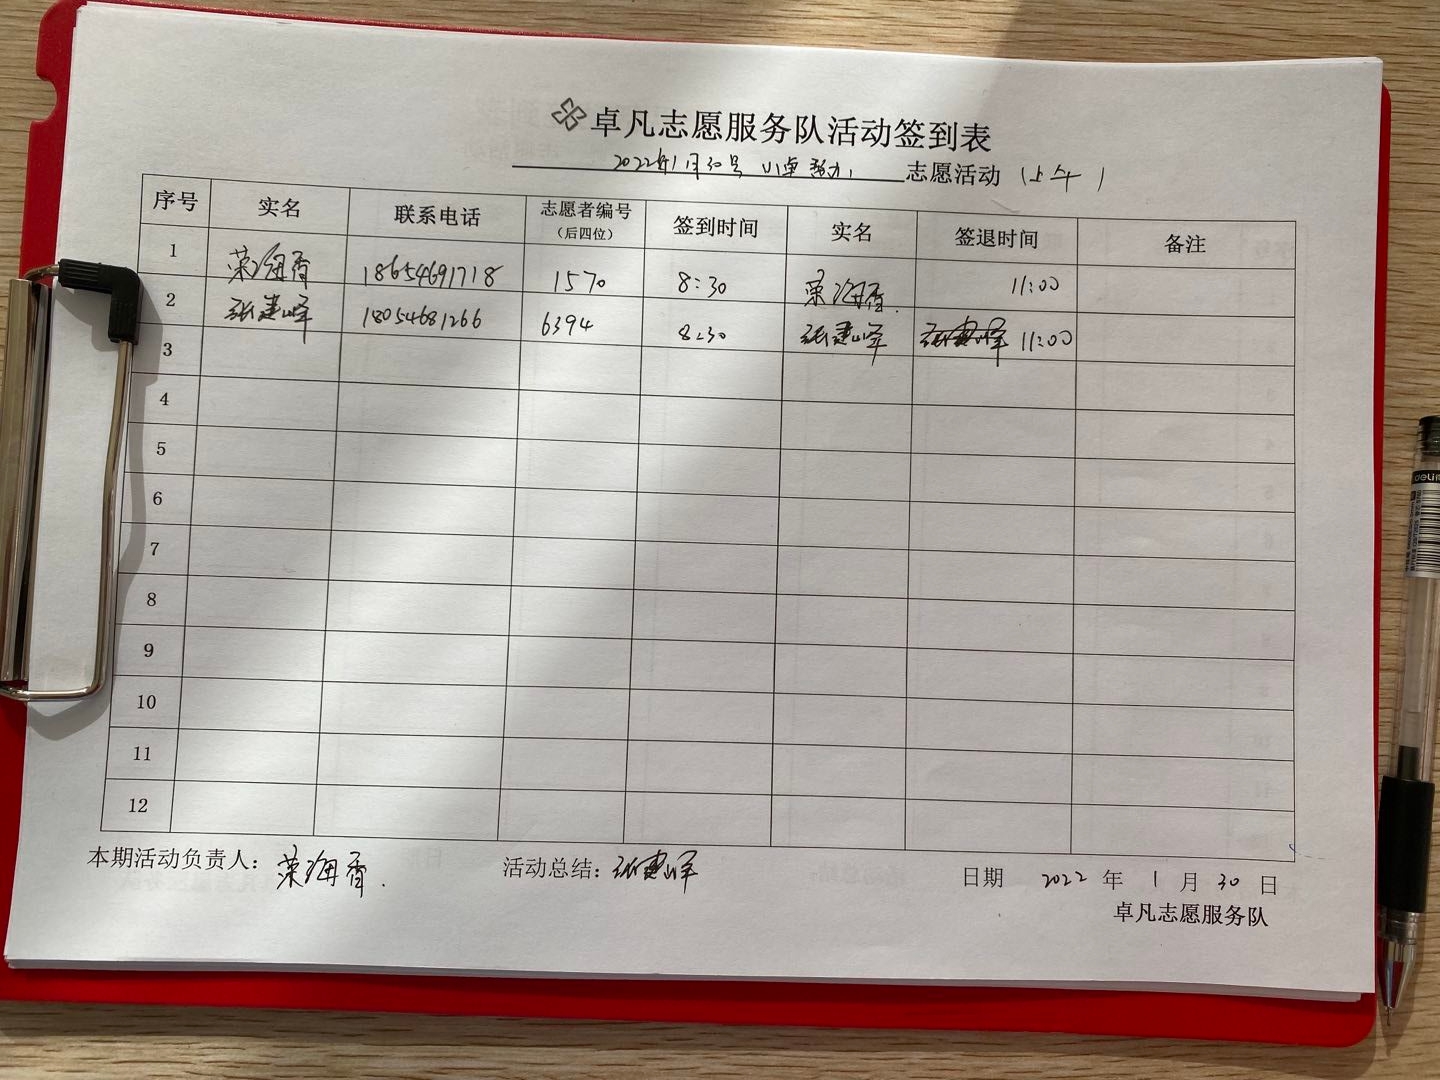 卓凡志愿服务队活动签到表
2022年1月30号 小卓 志愿活动 (上午)
序号 实名 联系电话 志愿者编号 (后四位) 签到时间 实名 签退时间 备注
1 荣海香 18654691718 1570 8:30 荣海香. 11:00
2 张建峰 18054681266 6394 8:30 张建峰 11:00
3
4
5
6
7
8
9
10
11
12
本期活动负责人: 荣海香. 活动总结: 张建峰 日期 2022 年 1 月 30 日
卓凡志愿服务队
deli